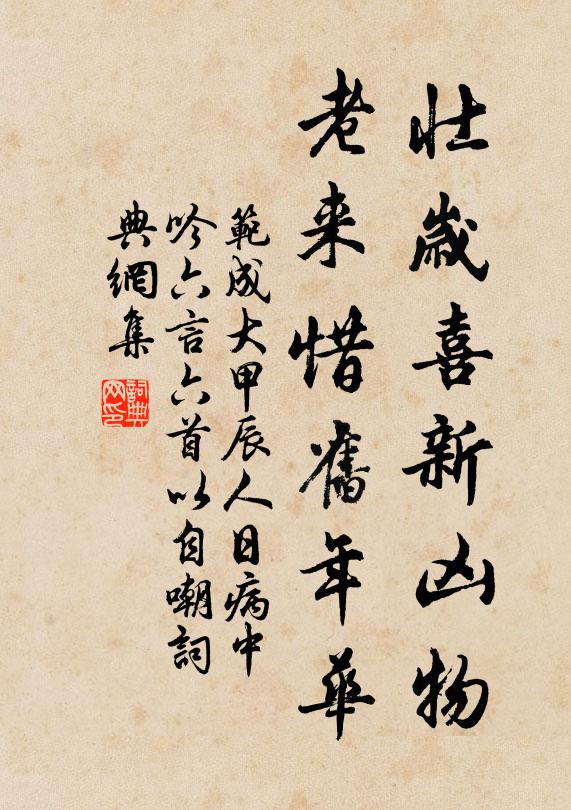 壮歲喜新凶物
老来惜舊年華
範成大甲辰人日病中
吟六言六首以自嘲詞
典網集
詞典
网印